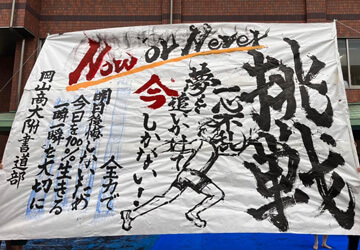 Now or Never
挑戦
一心不乱
夢を
追いかけ
今
しかない!
全力で
明日後悔しないため
今日を100%生きる
一瞬一瞬を大切に
岡山高大附書道部